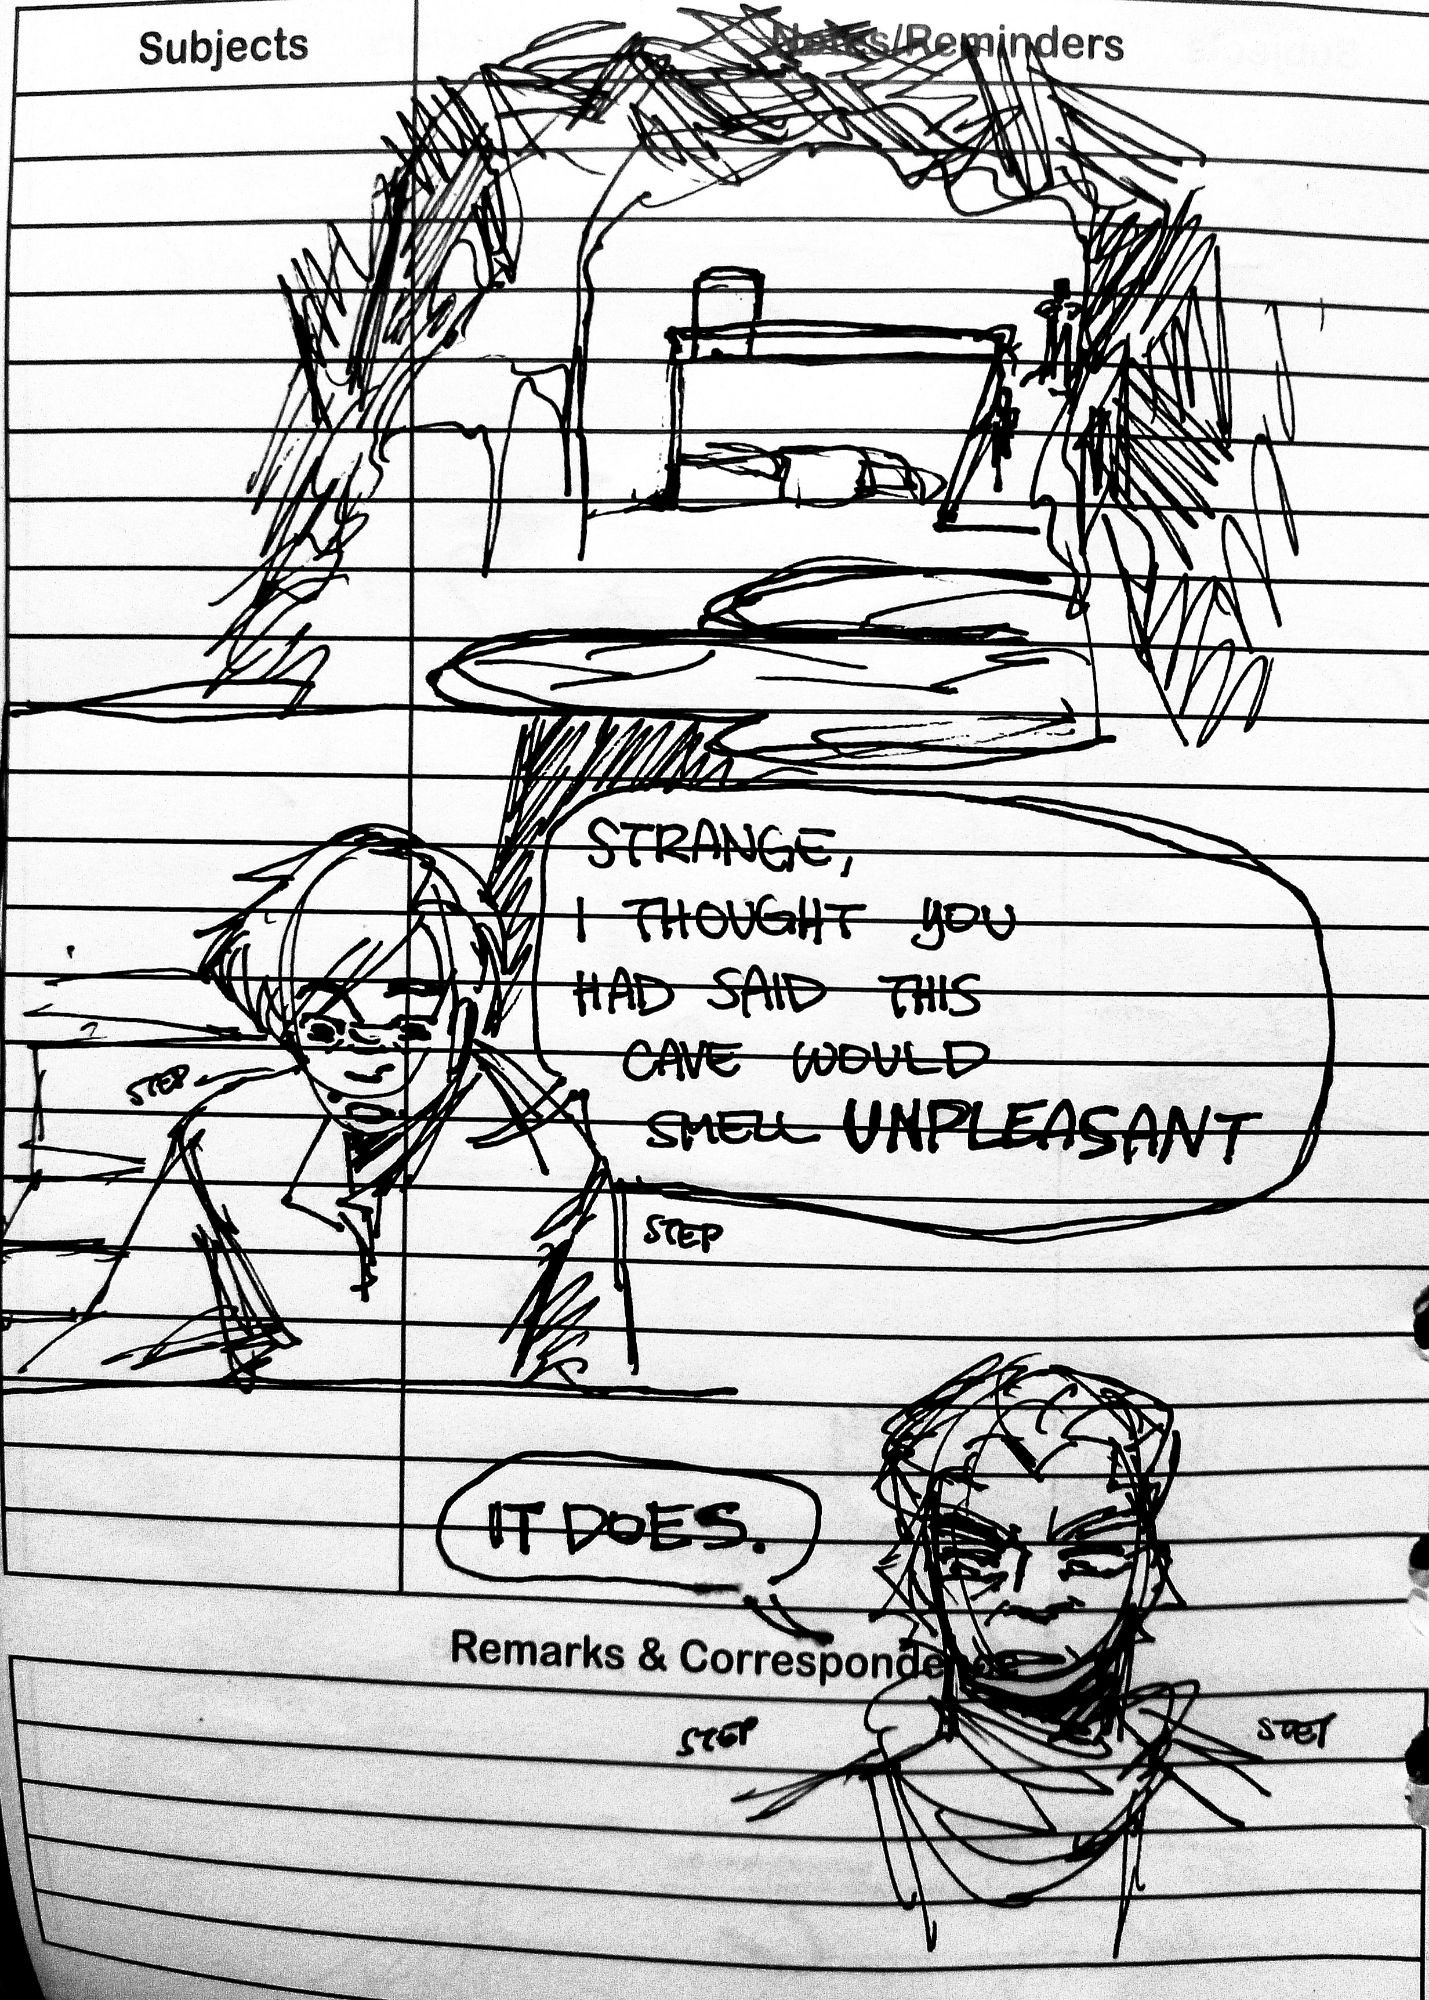 Subjects
Notes/Reminders
STRANGE,
I THOUGHT YOU
HAD SAID THIS
CAVE WOULD
SMELL UNPLEASANT
STEP
STEP
IT DOES.
Remarks & Correspondence
STEP
STEP